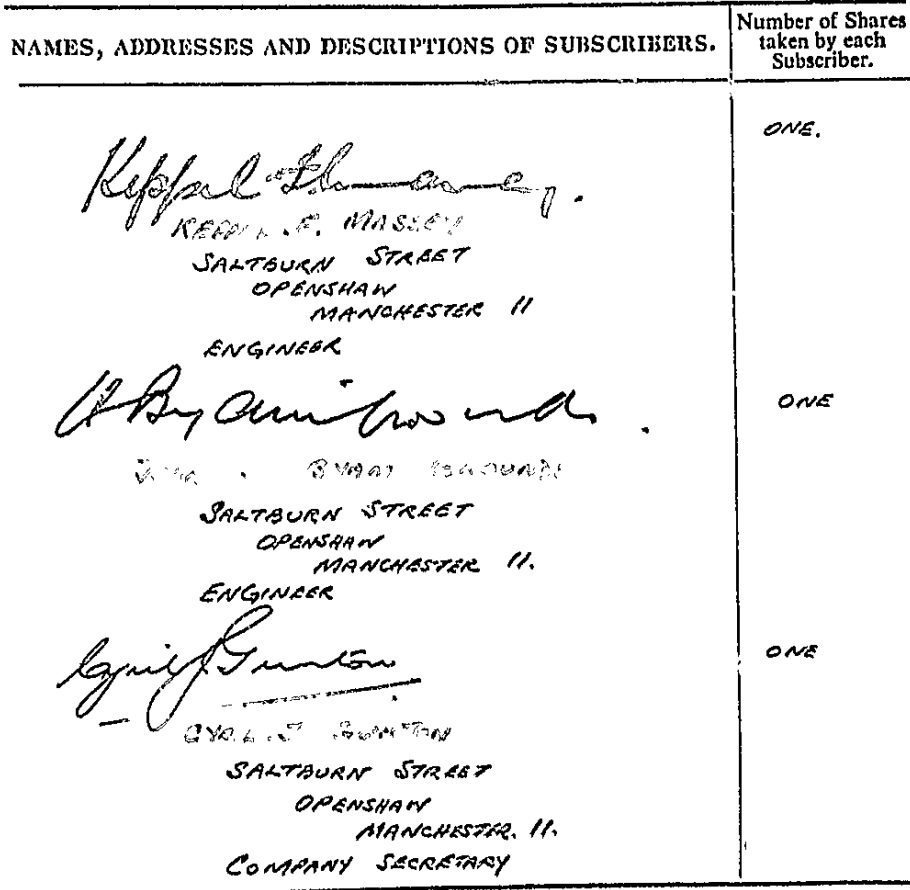 NAMES, ADDRESSES AND DESCRIPTIONS OF SUBSCRIBERS.
Number of Shares
taken by each
Subscriber.
ONE.
Keppel
F. MASSEY
SALTBURN STREET
OPENSHAW
MANCHESTER 11
ENGINEER
ONE
SALTBURN STREET
OPENSHAW
MANCHESTER 11.
ENGINEER
ONE
Cyril J Gunton
CYRIL J GUNTON
SALTBURN STREET
OPENSHAW
MANCHESTER. 11.
COMPANY SECRETARY